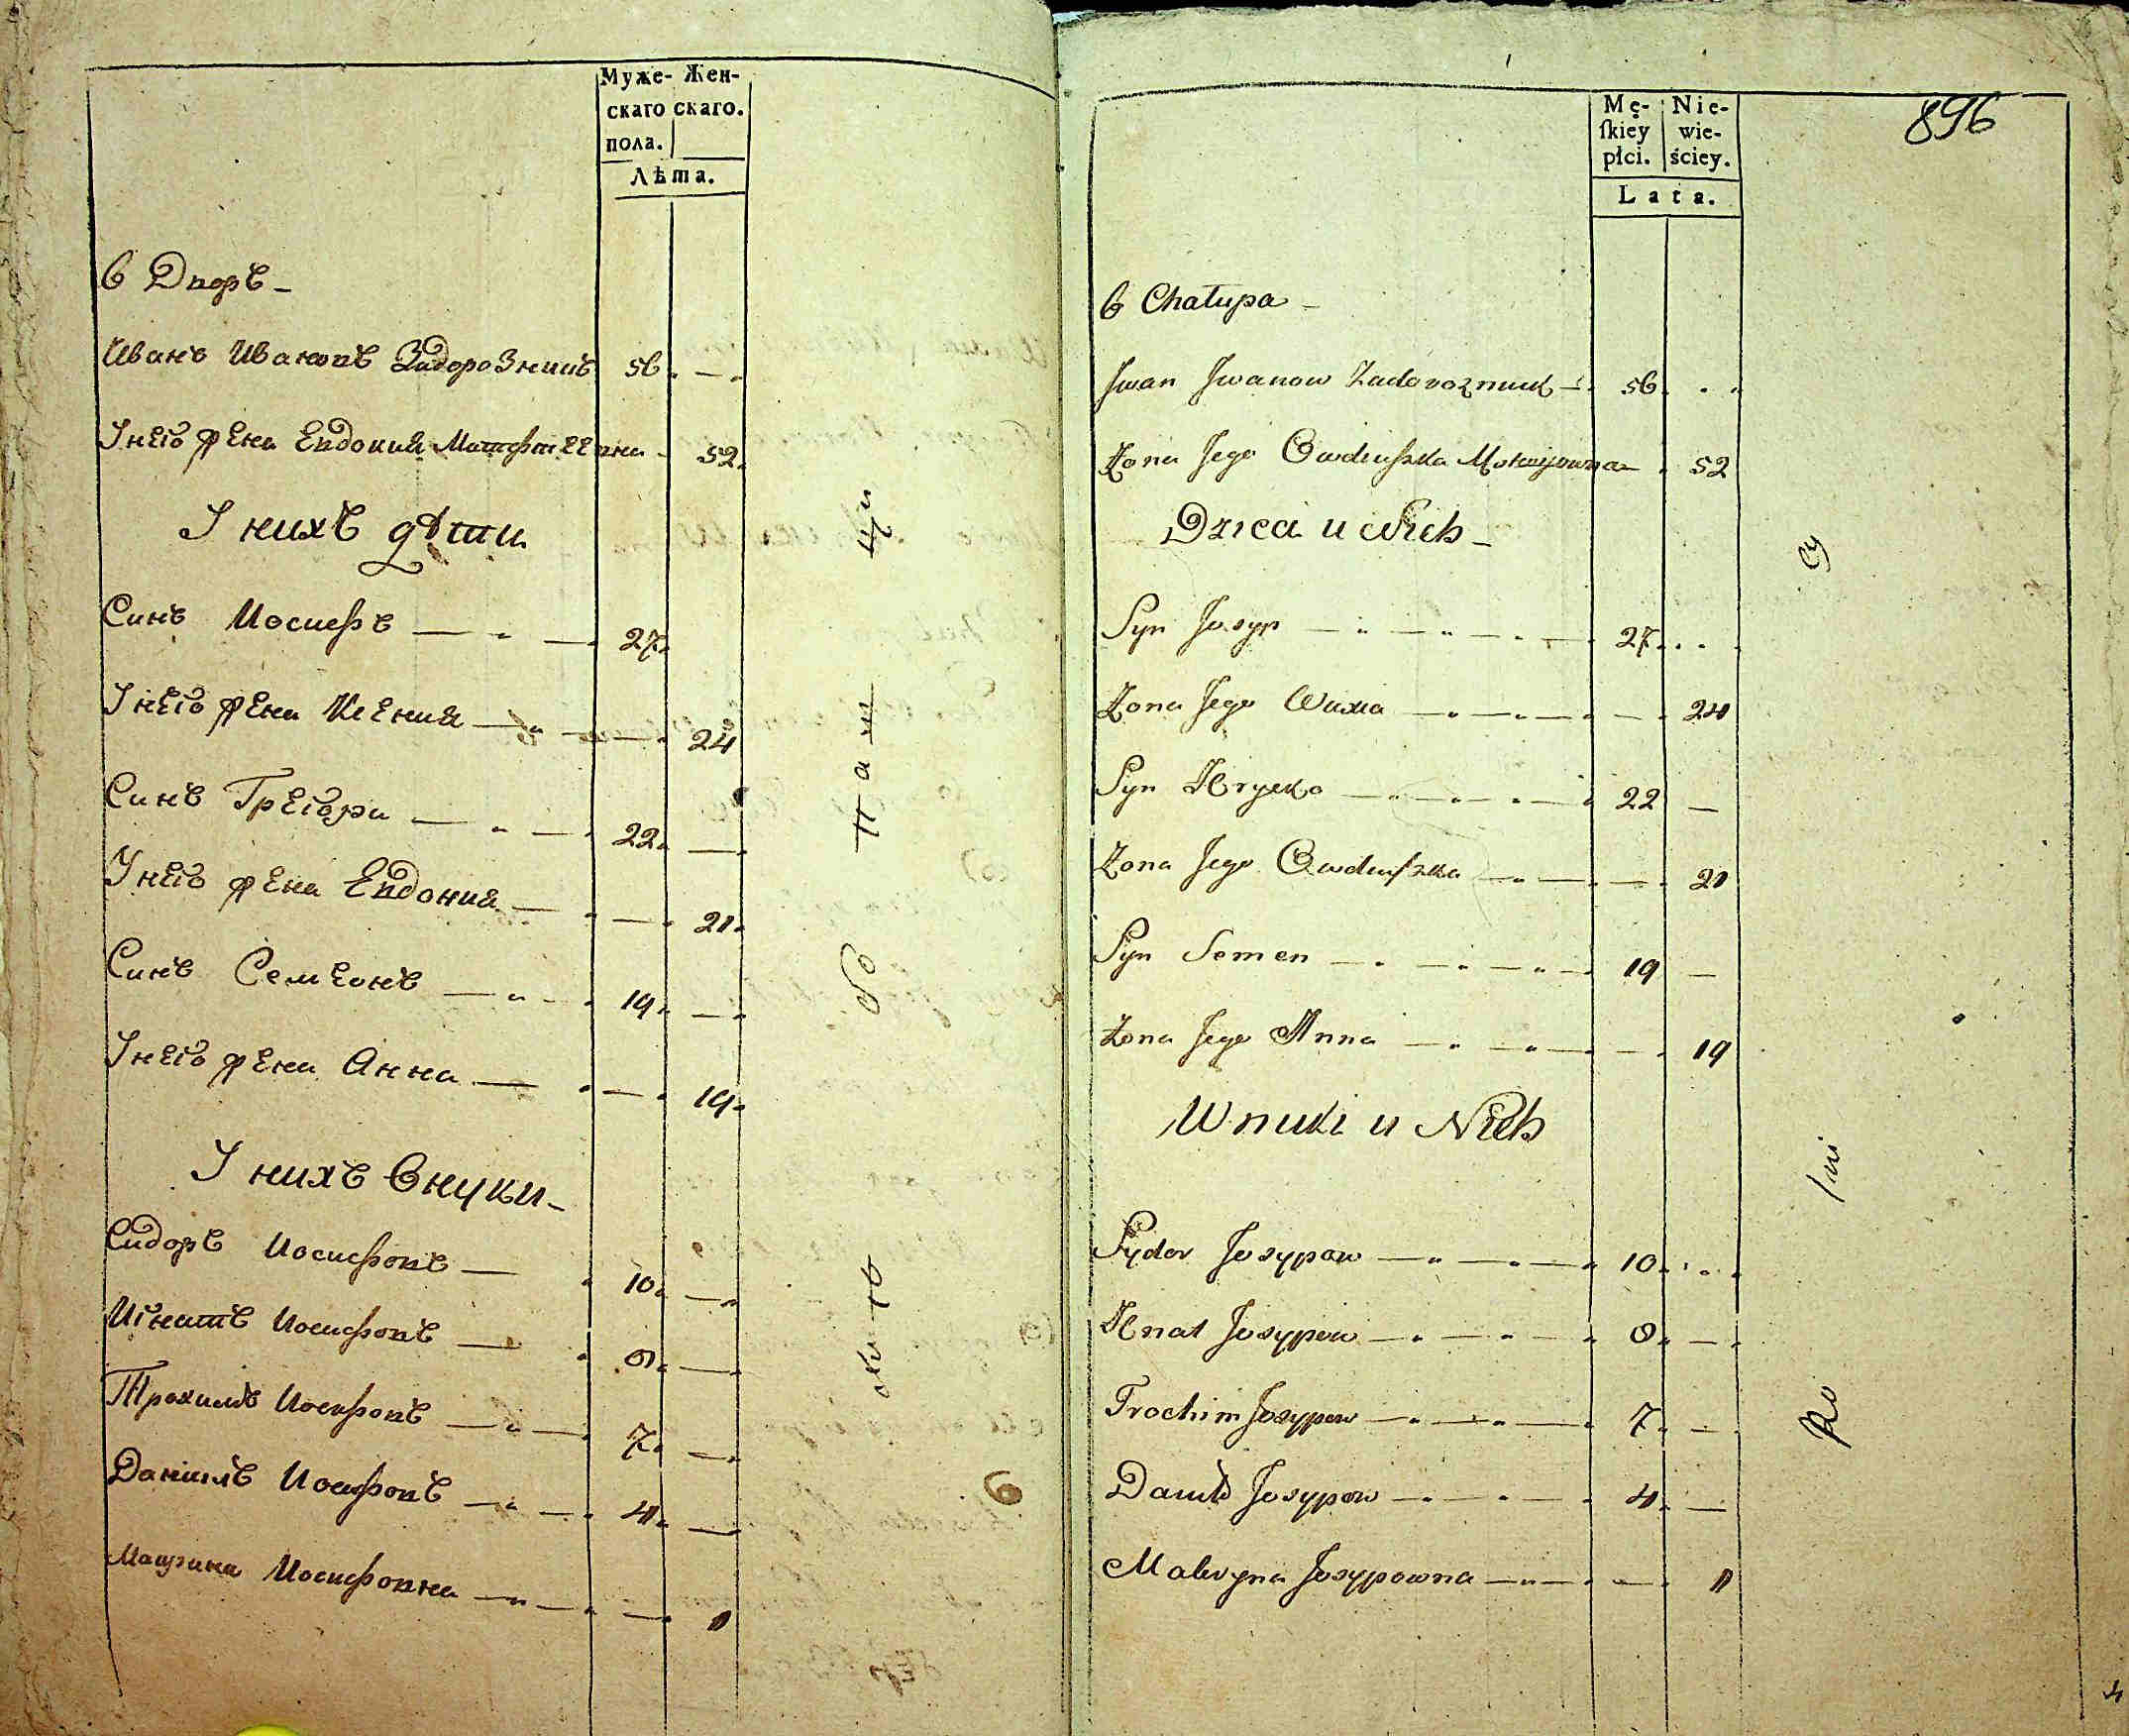 Муже- Жен-
скаго скаго.
пола.
Лѣта.
6 Дворъ
Иванъ Ивановъ Задорозниъ 56
У него жена Евдокия Матфтеевна 52
У нихъ дѣти
Синъ Иосифъ 27
У него жена Ксения 24
Синъ Григори 22
У него жена Евдокия 21
Синъ Семеонъ 19
У него жена Анна 19
У нихъ внуки
Сидоръ Иосифовъ 10
Игнатъ Иосифовъ 8
Трохимъ Иосифовъ 7
Даниилъ Иосифовъ 4
Маврина Иосифовна 1
896
Mę- Nie-
ſkiey wie-
płci. ściey.
Lata.
6 Chałupa
Jwan Jwanow Zadoroznuk 56
Żona Jego Owduszka Motwijowna 52
Dzieci u Nich
Syn Josyp 27
Żona Jego 24
Syn Hryćko 22
Żona Jego Owduſzka 21
Syn Semen 19
Żona Jego Anna 19
Wnuki u Nich
Sydor Josypow 10
Hnat Josypow 8
Trochim Josypow 7
Daniło Josypow 4
Mawryna Josypowna 1